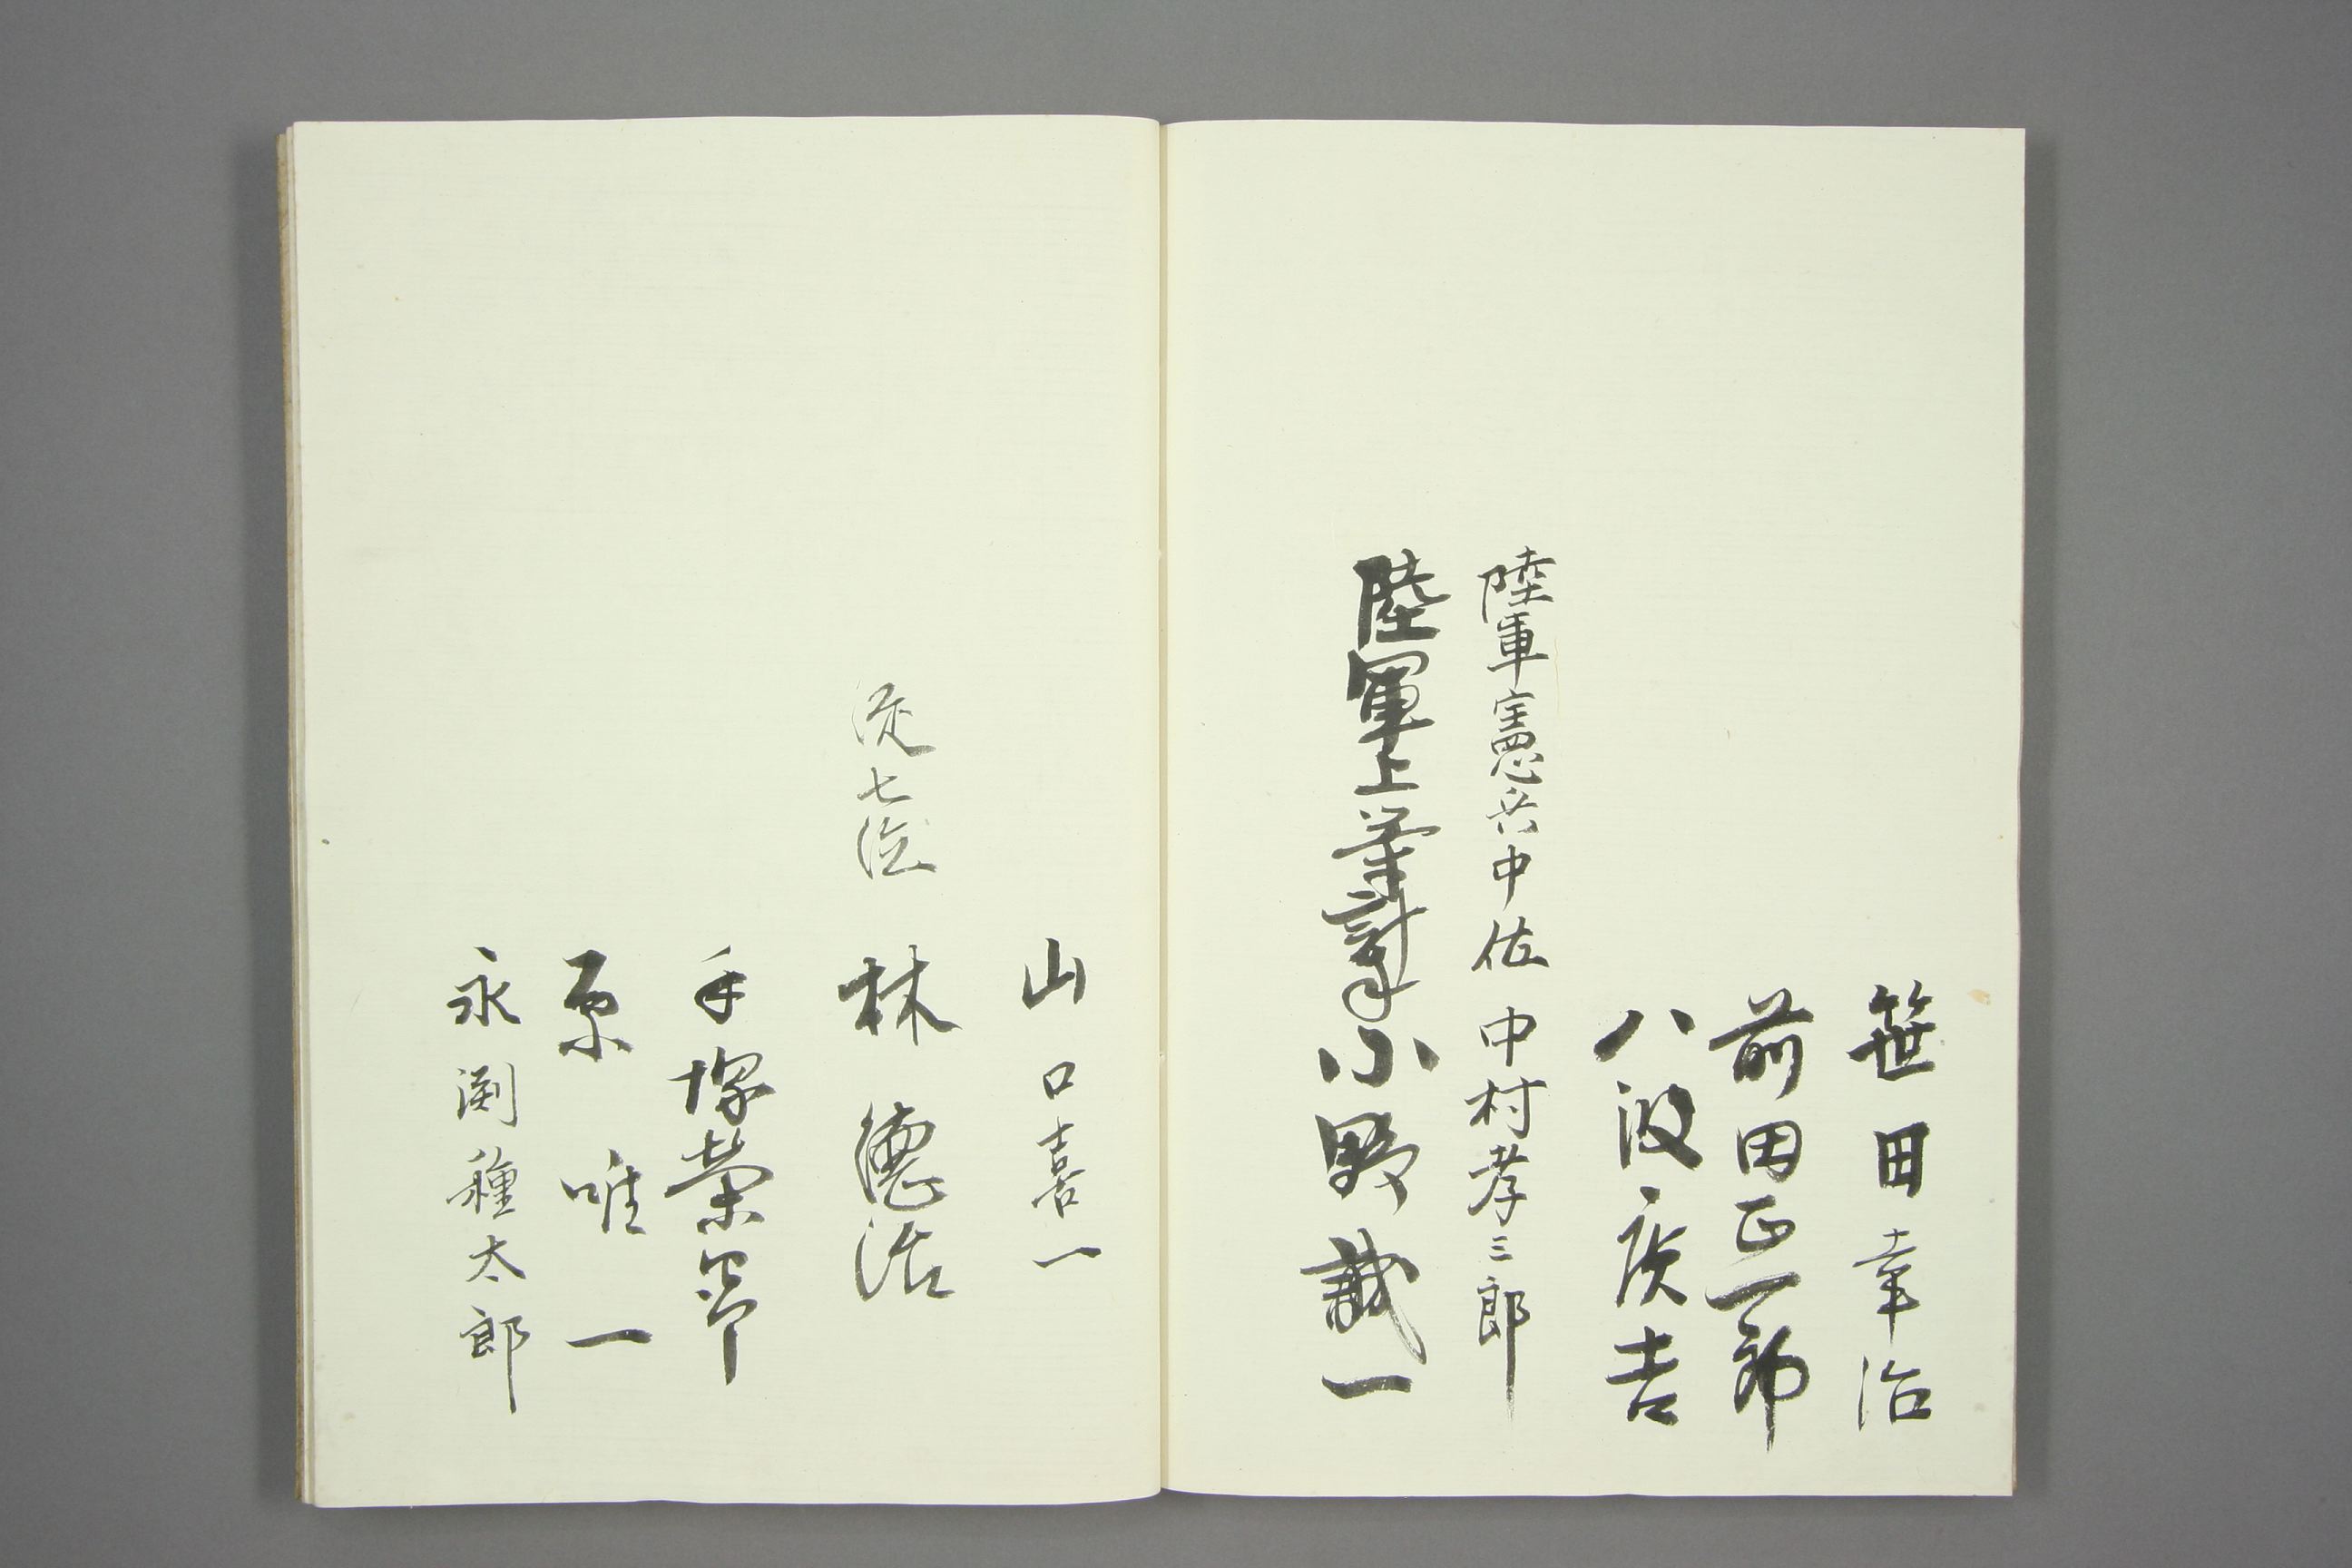 笹田幸治
前田正一郎
八波 吉
陸軍憲兵中佐 中村孝三郎
陸軍上等計手 小野誠一
山口喜一
従七位 林 徳治
手塚榮
原 唯一
永渕種太郎